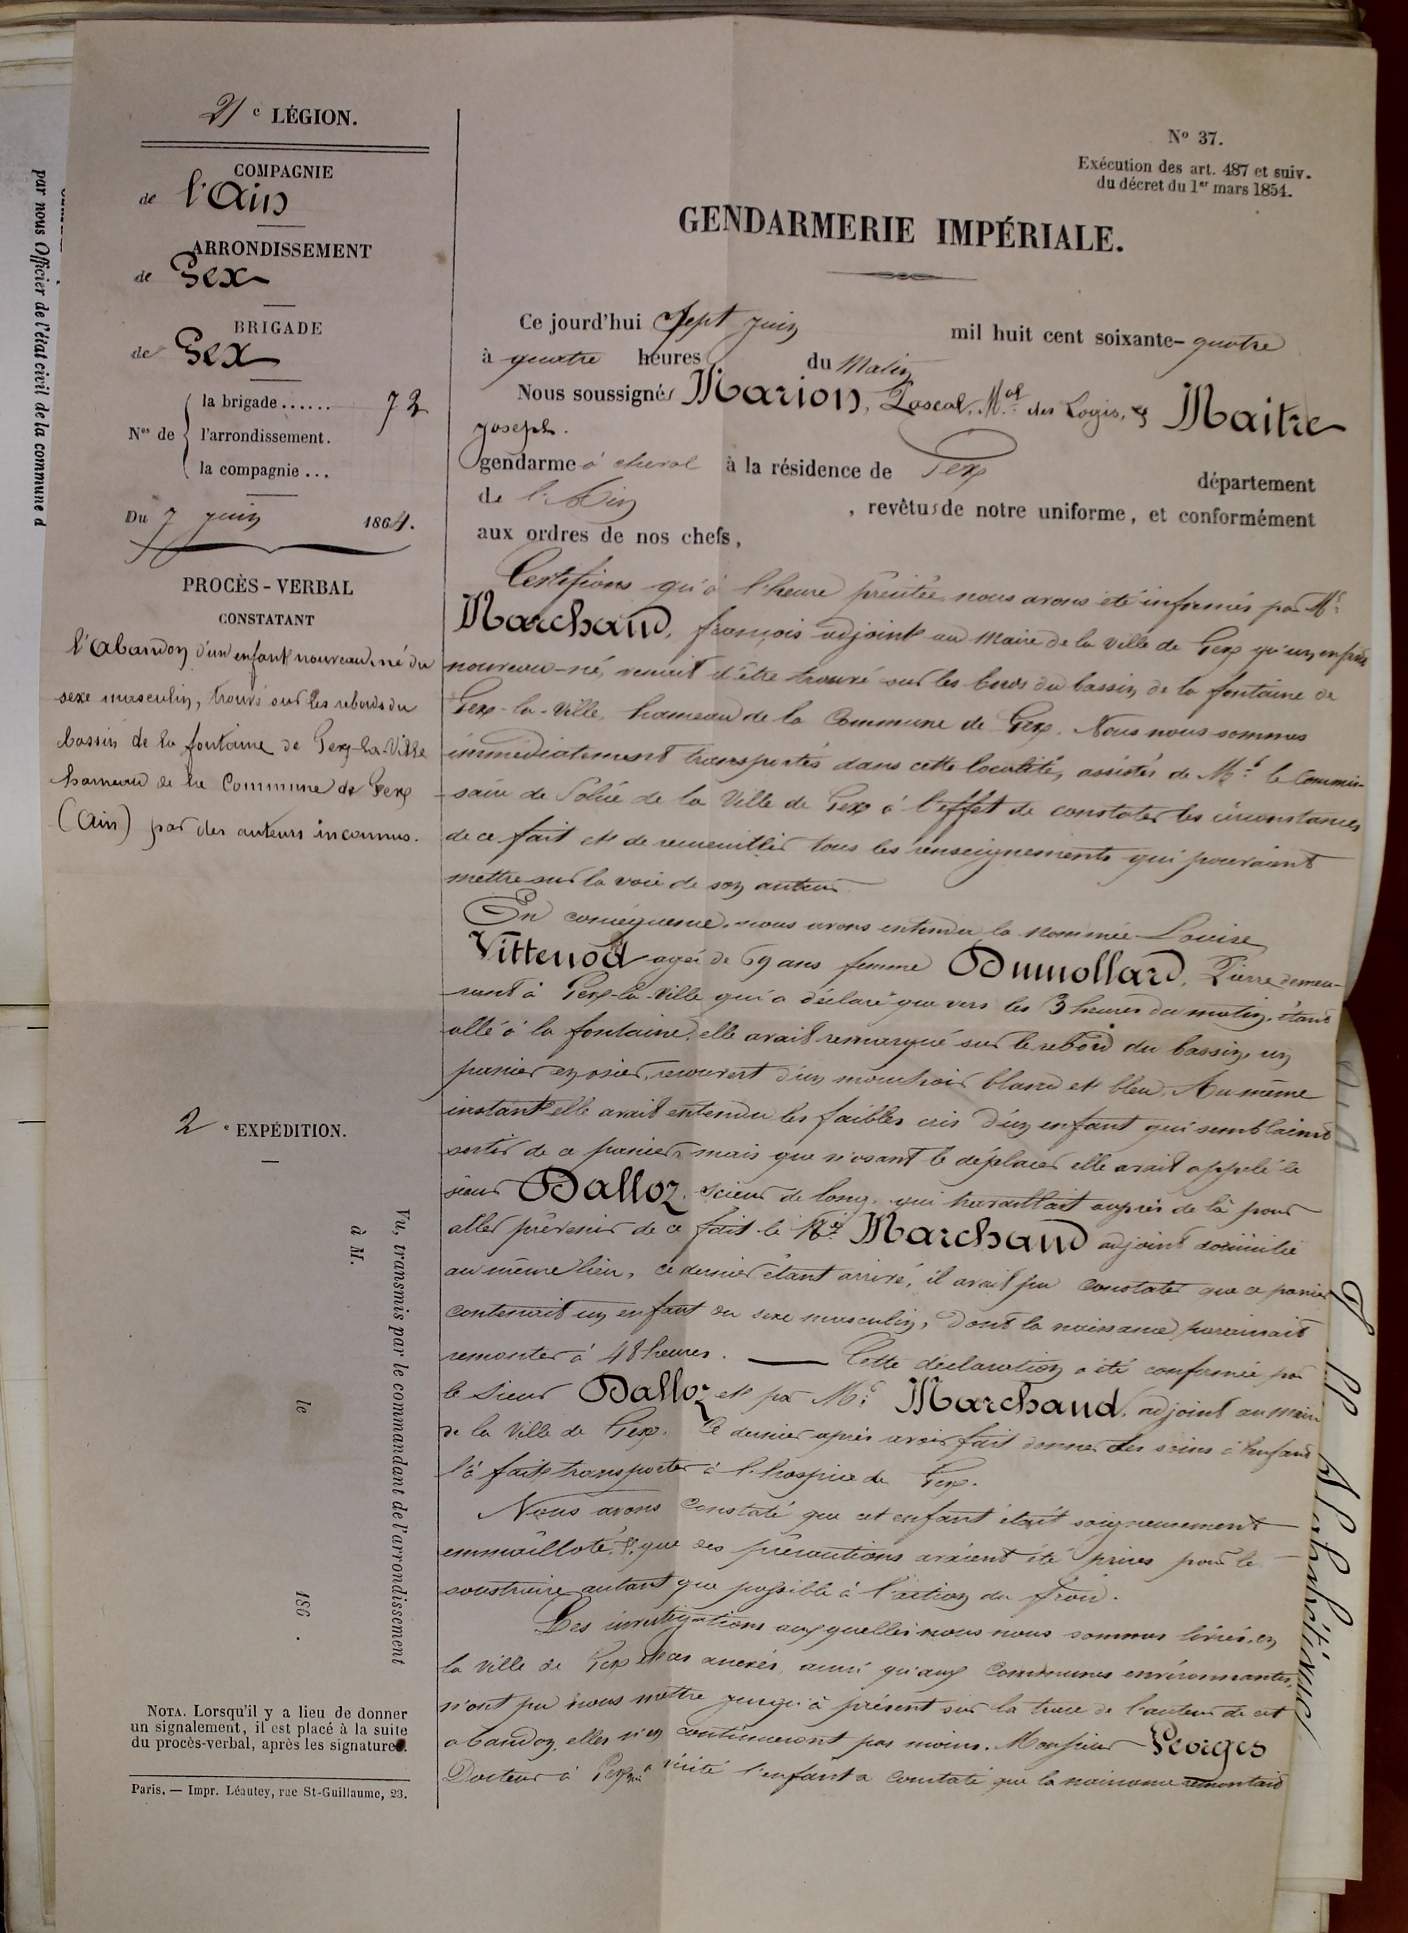 21e LÉGION.
COMPAGNIE
de l'Ain
ARRONDISSEMENT
de Gex
BRIGADE
de Gex
Nos de
la brigade...... 72
l'arrondissement.
la compagnie...
Du 7 juin 1864.
PROCÈS-VERBAL
CONSTATANT
l'Abandon d'un enfant nouveau-né du
sexe masculin, trouvé sur les rebords du
bassin de la fontaine de Gex-la-Ville
hameau de la Commune de Gex
(Ain) par des auteurs inconnus.
2e EXPÉDITION.
Vu, transmis par le commandant de l'arrondissement
à M.
le 186 .
NOTA. Lorsqu'il y a lieu de donner
un signalement, il est placé à la suite
du procès-verbal, après les signatures.
Paris. — Impr. Léautey, rue St-Guillaume, 23.
No 37.
Exécution des art. 487 et suiv.
du décret du 1er mars 1854.
GENDARMERIE IMPÉRIALE.
Ce jourd'hui Sept juin mil huit cent soixante-quatre
à quatre heures du Matin
Nous soussignés Marion, Pascal, Mal des Logis, & Maitre
joseph.
gendarme à cheval à la résidence de Gex département
de l'Ain, revêtus de notre uniforme, et conformément
aux ordres de nos chefs,
Certifions qu'à l'heure précitée nous avons été informés par Mr
Marchand, françois adjoint au Maire de la ville de Gex qu'un enfant
nouveau-né, venait d'être trouvé sur les bords du bassin de la fontaine de
Gex-la-Ville, hameau de la Commune de Gex. Nous nous sommes
immédiatement transportés dans cette localité, assistés de Mr le Commis-
saire de Police de la Ville de Gex à l'effet de constater les circonstances
de ce fait et de recueuillir tous les renseignements qui pouraient
mettre sur la voie de son auteur.
En conséquence, nous avons entendu la nommée Louise
Vittenod agée de 69 ans femme Dumollard, Pierre demeu-
rant à Gex-la-Ville qui a déclaré que vers les 3 heures du matin, étant
allé à la fontaine, elle avait remarqué sur le rebord du bassin un
panier en osier, recouvert d'un mouchoir blanc et bleu. Au même
instant elle avait entendu les faibles cris d'un enfant qui semblaient
sortir de ce panier, mais que n'osant le déplacer elle avait appelé le
sieur Dalloz, scieur de long, qui travaillait auprès de là pour
aller prévenir de ce fait le Mr Marchand adjoint domicilié
au même lieu, ce dernier étant arrivé, il avait pu constater que ce panier
contenait un enfant du sexe masculin, dont la naissance paraissait
remonter à 48 heures. — Cette déclaration a été confirmée par
le Sieur Dalloz et par Mr Marchand, adjoint au maire
de la Ville de Gex. Ce dernier après avoir fait donner des soins à l'enfant
l'a fait transporter à l'hospice de Gex.
Nous avons constaté que cet enfant était soigneusement
emmaillotté, & que des précautions avaient été prises pour le
soustraire autant que possible à l'action du froid.
Les investigations auxquelles nous nous sommes livrés, en
la Ville de Gex et ces anexés, ainsi qu'aux Communes environnantes,
n'ont pu nous mettre jusqu'à présent sur la trace de l'auteur de cet
abandon, elles n'en continueront pas moins. Monsieur Georges
Docteur à Gex qui a visité l'enfant a constaté que la naissance remontait
par nous Officier de l'état civil de la commune d